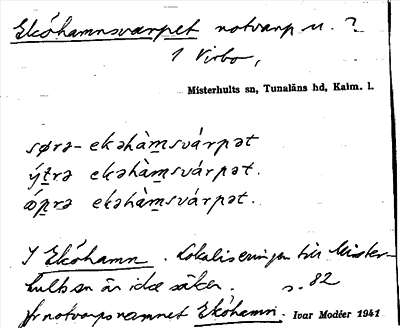 Ekóhamnsvarpet notvarp n. ?
i Virbo,
Misterhults sn, Tunaläns hd, Kalm. l.
sørə- ekəhàmsvárpət
ýtrə ekəhàmsvárpət.
ǿprə ekəhàmsvárpət.
I Ekóhamn. Lokaliseringen till Mister-
hults sn är icke säker. s. 82
jfr notvarpsnamnet Ekóhamn. Ivar Modéer 1941